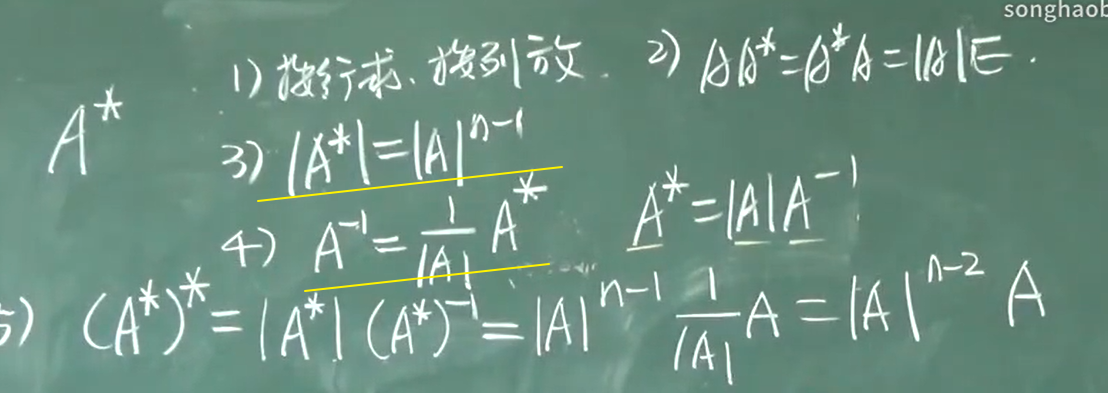 songhaob
1) 按行求、按列放. 2) AA*=A*A=|A|E.
A*
3) |A*|=|A|^{n-1}
4) A^{-1}=\frac{1}{|A|}A* A*=|A|A^{-1}
5) (A*)*=|A*|(A*)^{-1}=|A|^{n-1}\frac{1}{|A|}A=|A|^{n-2}A